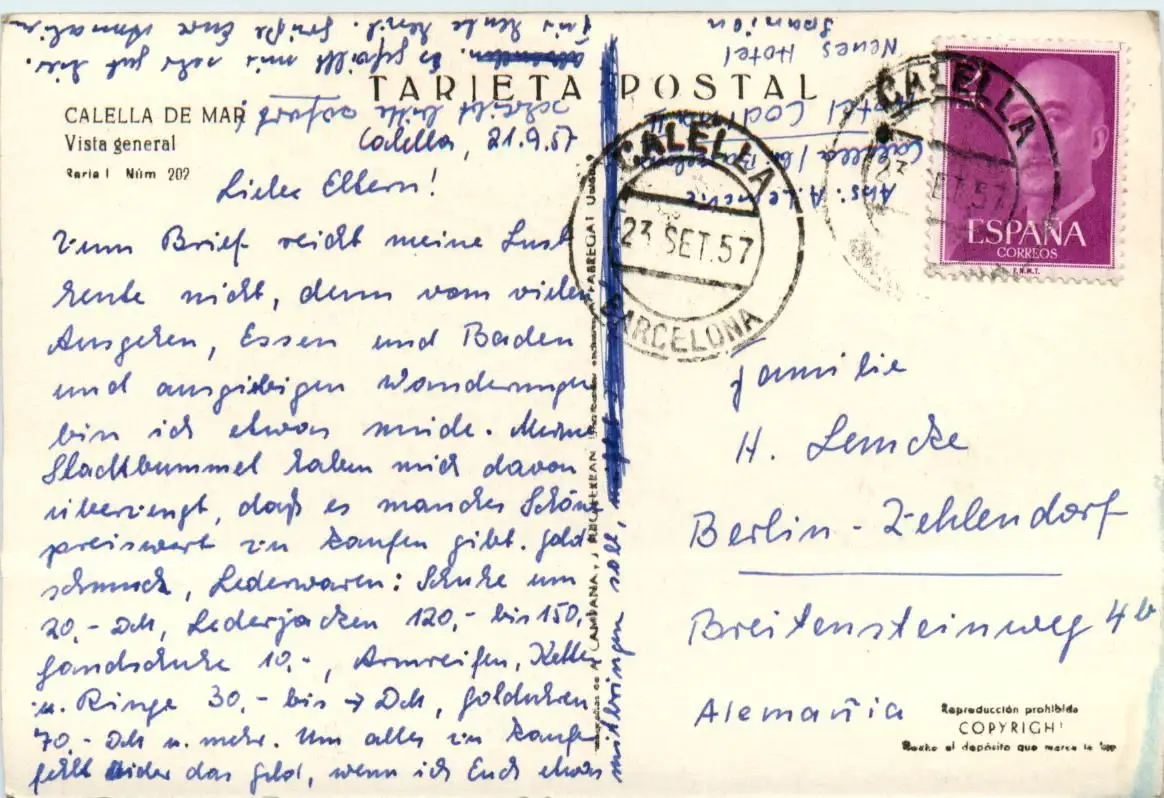 TARJETA POSTAL
CALELLA DE MAR
Vista general
Serie I Núm 202
Calella, 21.9.57
Liebe Eltern!
Zum Brief reicht meine Lust
heute nicht, denn vom vielen
Ausgehen, Essen und Baden
und ausgiebigen Wanderungen
bin ich etwas müde. Meine
Stadtbummel haben mich davon
überzeugt, daß es manches Schöne
preiswert zu kaufen gibt. Gold-
schmuck, Lederwaren: Schuhe um
20,- DM, Lederjacken 120,- bis 150,-
Handschuhe 10,-, Armreifen, Ketten
u. Ringe 30,- bis → DM, Golduhren
70,- DM u. mehr. Um alles zu kaufen
fehlt leider das Geld, wenn ich Euch etwas
mitbringen soll,
schreibt bitte sofort!
Es gefällt mir sehr gut hier.
Für heute herzl. Grüße Eure
Abs: A. Lemcke
Calella / b. Barcelona
Hotel
Neues Hotel
Spanien
CALELLA
23 SET. 57
BARCELONA
CALELLA
23 SET. 57
ESPAÑA
CORREOS
F.N.M.T.
Familie
H. Lemcke
Berlin-Zehlendorf
Breitensteinweg 4b
Alemañia
Reproducción prohibida
COPYRIGHT